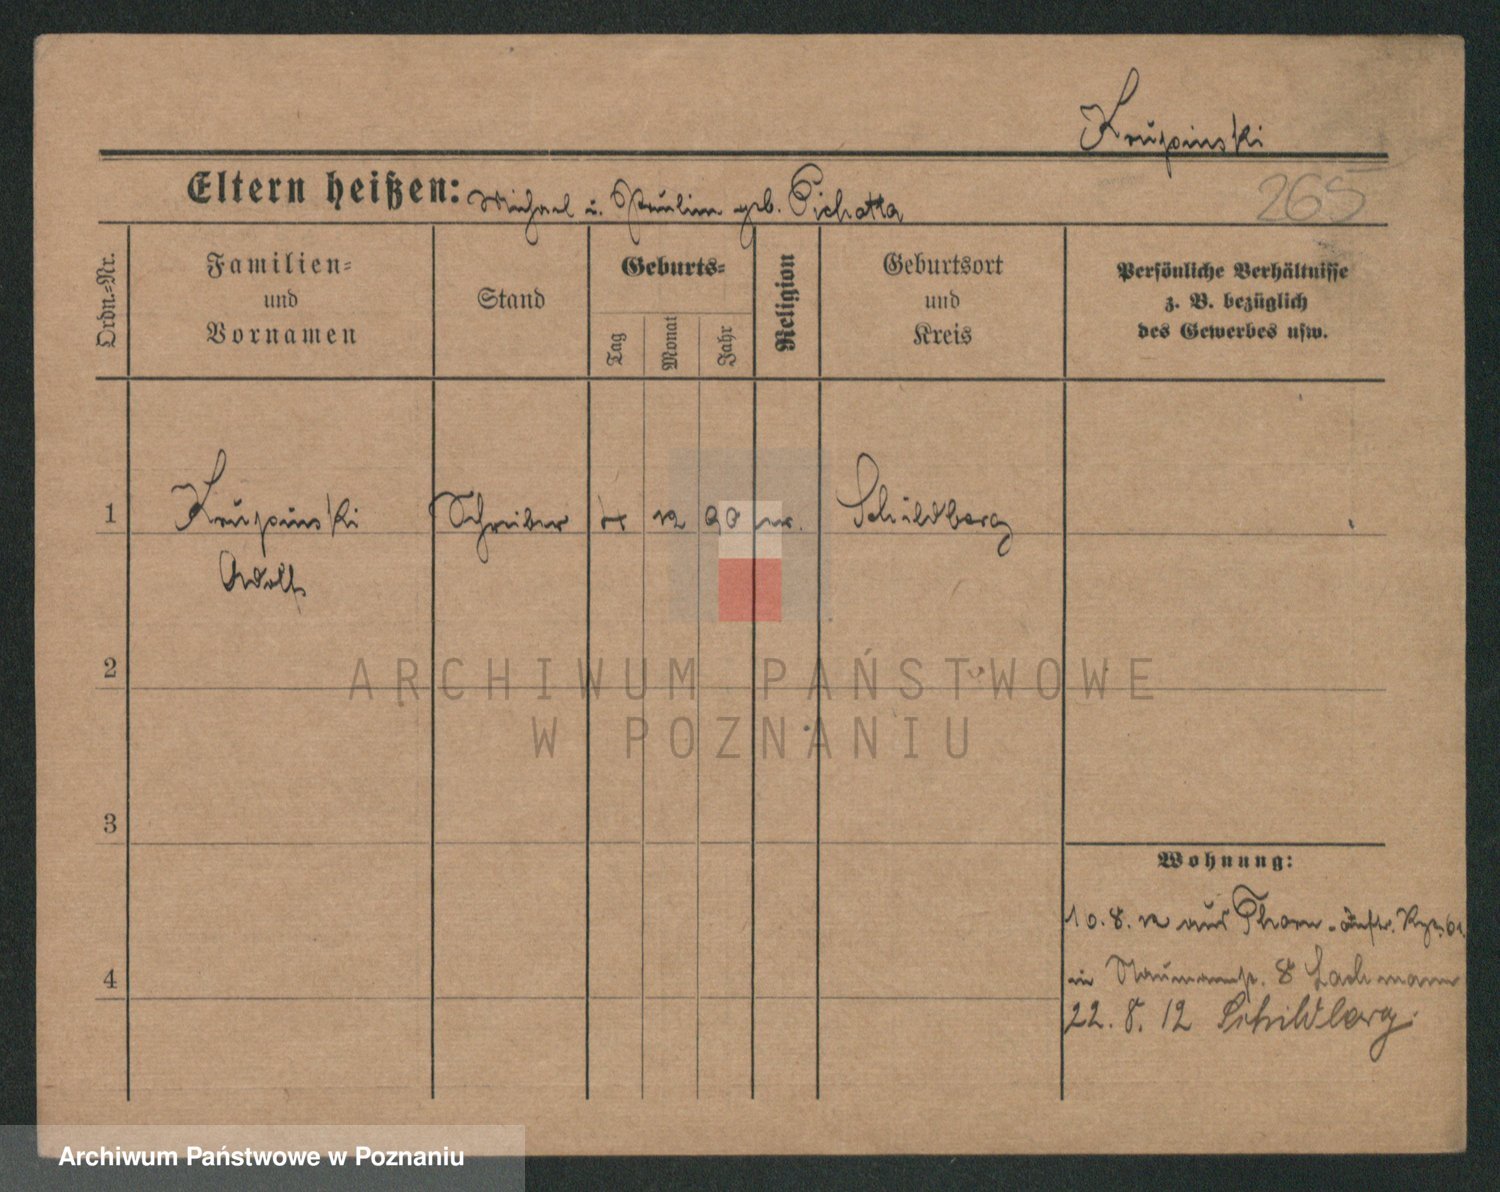 Krupinski
Eltern heißen: Michael u. Paulin geb. Pichatta
265
Ordn.-Nr.
Familien-
und
Vornamen
Stand
Geburts-
Tag
Monat
Jahr
Religion
Geburtsort
und
Kreis
Persönliche Verhältnisse
z. B. bezüglich
des Gewerbes usw.
1 Krupinski Schreiber 12 90 Schildberg
Adolf
2
ARCHIWUM PAŃSTWOWE
W POZNANIU
3
Wohnung:
10. 8. 12 aus Thorn Inftr. Rgt. 61.
in Naumannstr. 8 Lachmann
4
22. 8. 12 Schildberg.
Archiwum Państwowe w Poznaniu